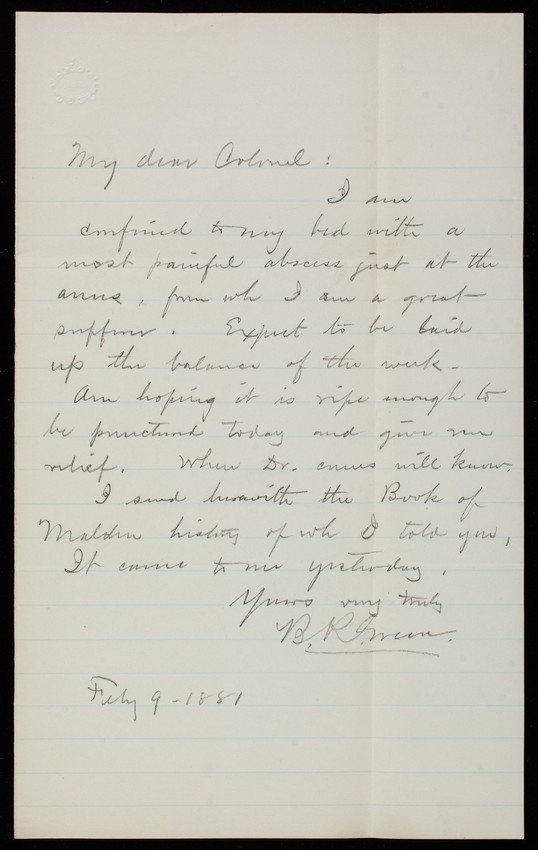 My dear Colonel :
I am
confined to my bed with a
most painful abscess just at the
anus, from wh I am a great
sufferer. Expect to be laid
up the balance of the week -
Am hoping it is ripe enough to
be punctured today and give me
relief. When Dr. comes will know.
I send herewith the Book of
Malden history of wh I told you,
It came to me yesterday.
Yours very truly
B. R. Green.
Feby 9 - 1881